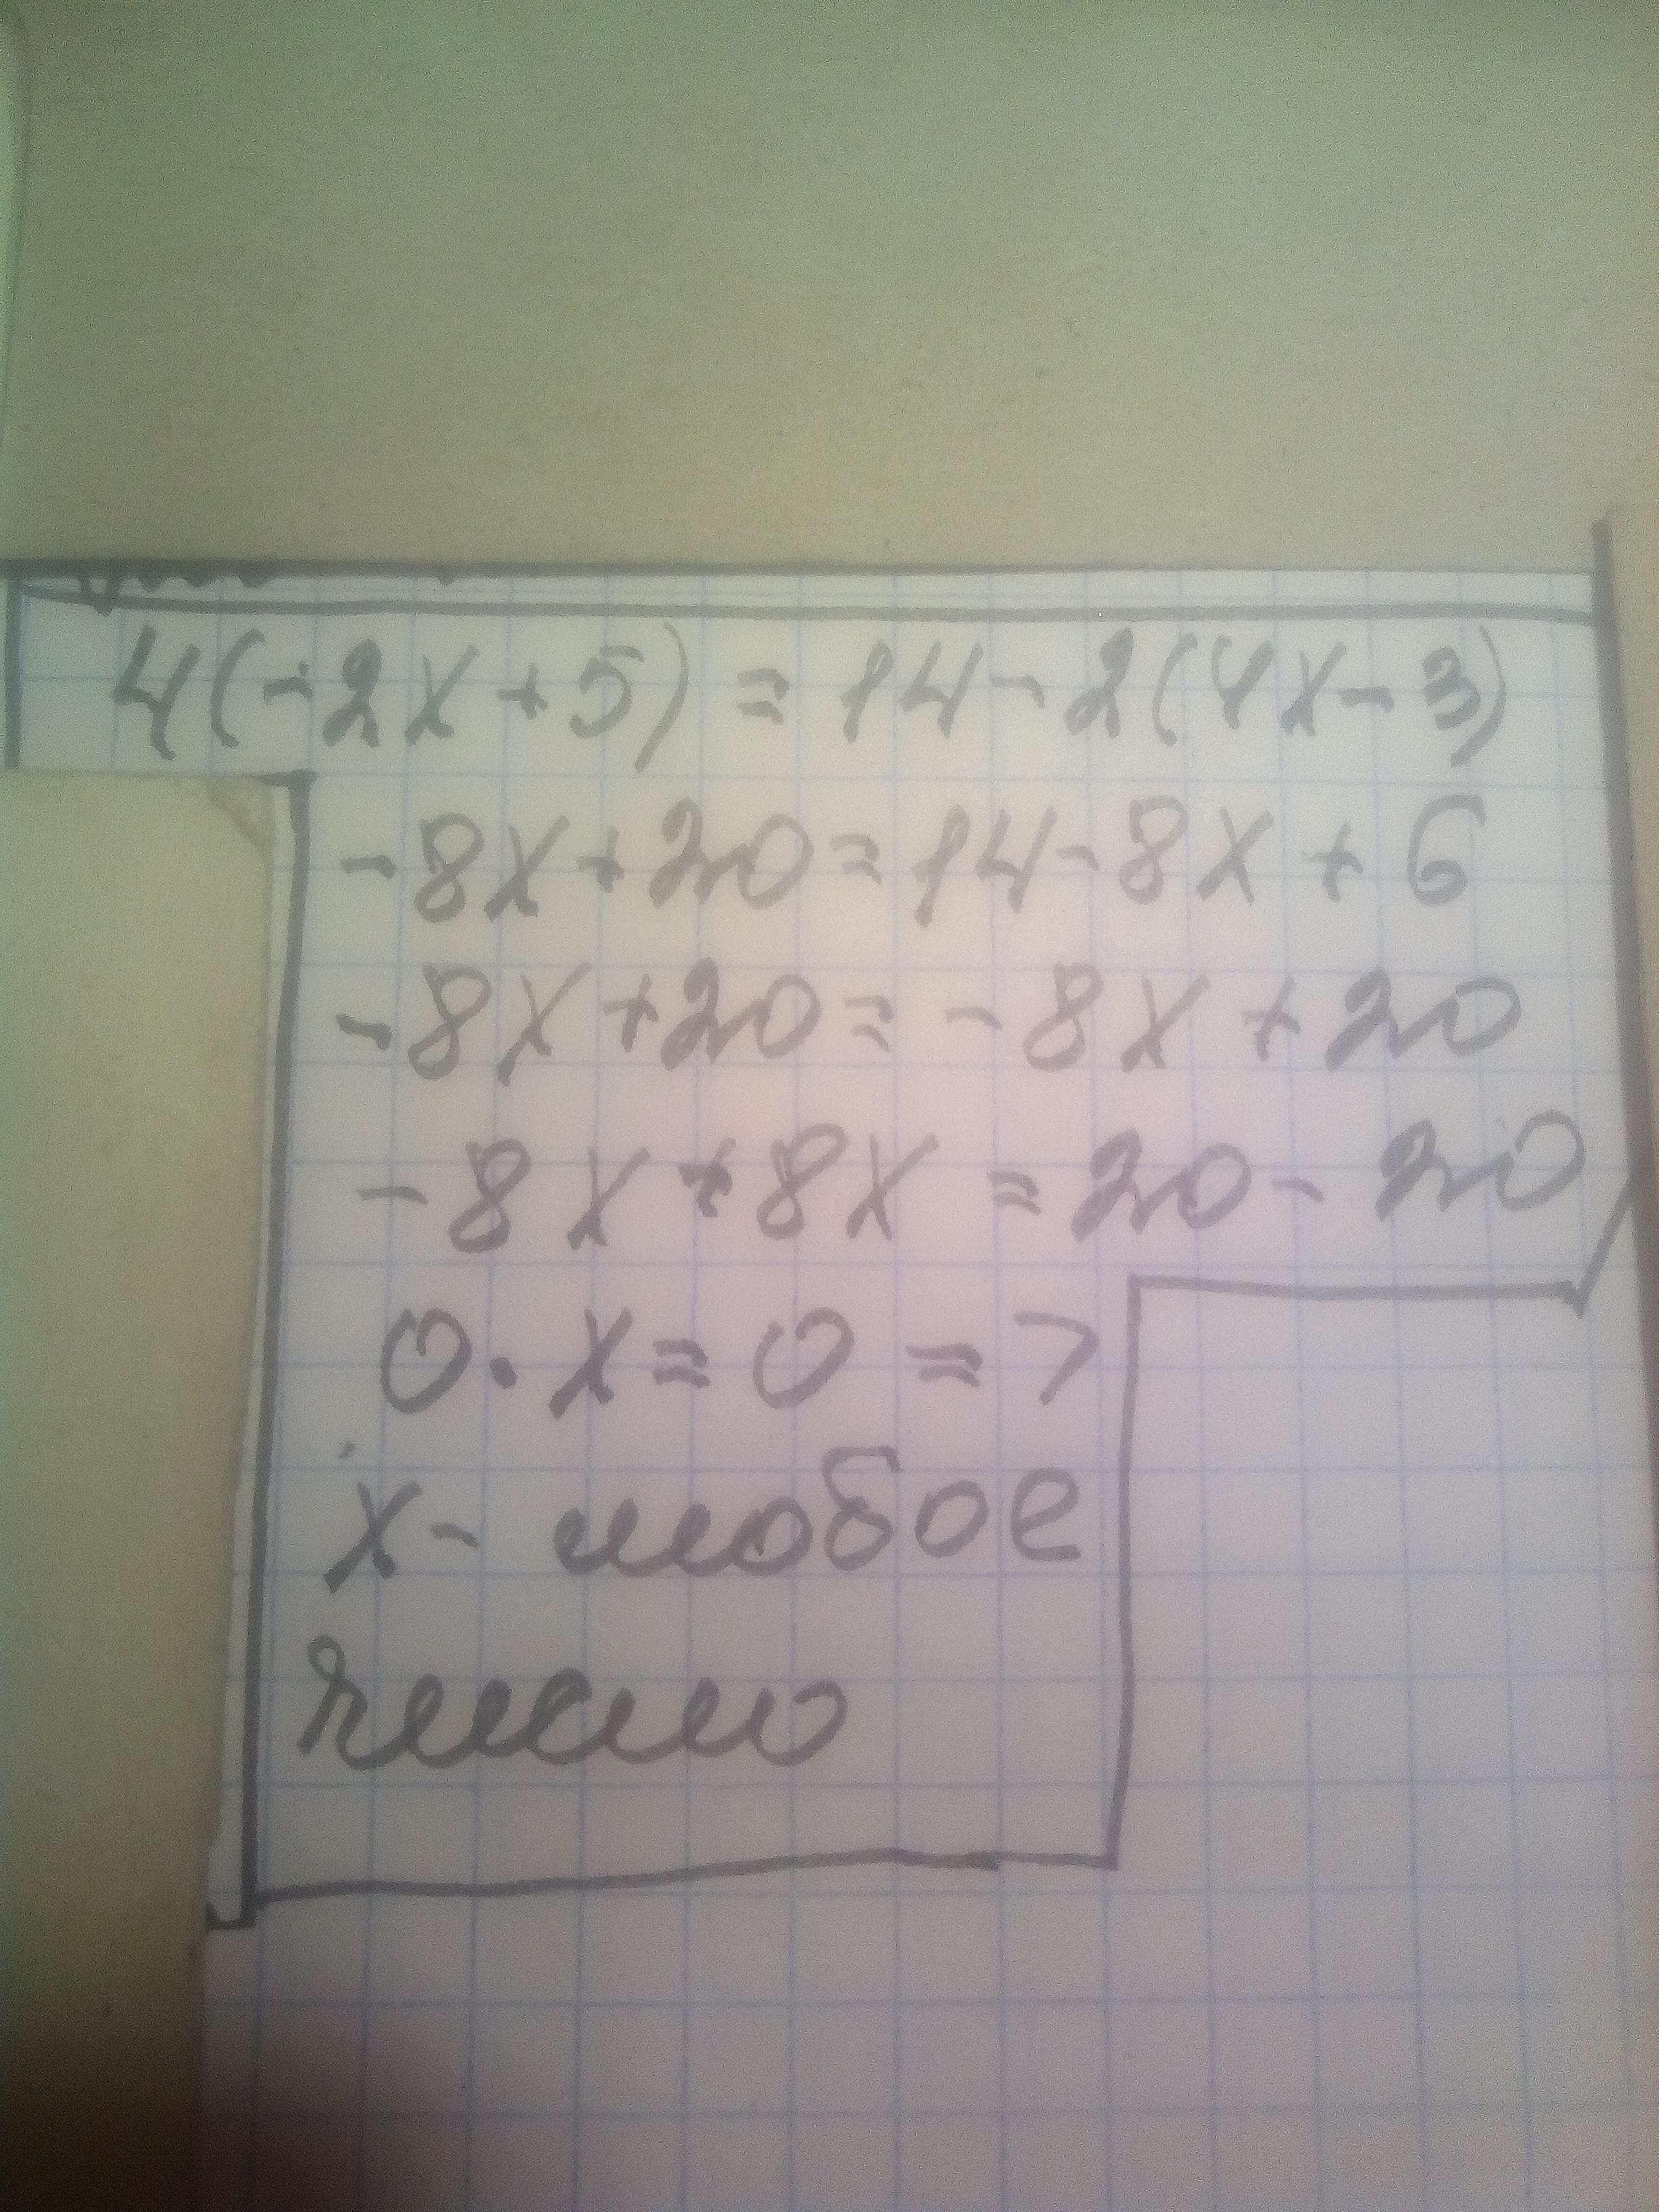 4(-2x+5)=14-2(4x-3)
-8x+20=14-8x+6
-8x+20=-8x+20
-8x+8x=20-20
0·x=0=>
x- любое
число